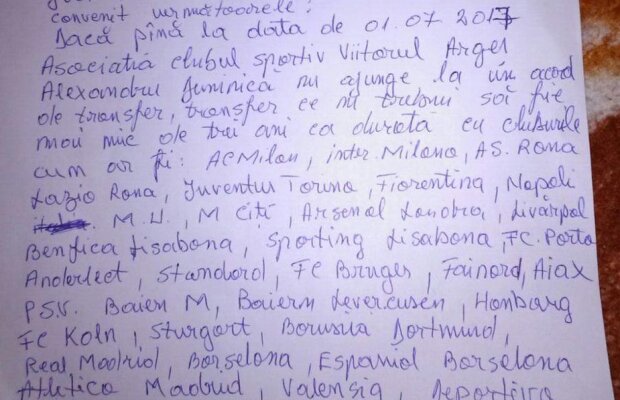 convenit următoarele:
Dacă pînă la data de 01.07 2017
Asociatia clubul sportiv Viitorul Argeș
Alexandru Juninică nu ajunge la un acord
de transfer, transfer ce nu trebuni să fie
mai mic de trei ani ca durată cu cluburile
cum ar fi: AC Milan, inter Milano, AS. Roma
Lazio Roma, Juventus Torino, Fiorentina, Napoli
M.U., M Citi, Arsenal Londra, Livărpol
Benfica Lisabona, Sporting Lisabona, FC. Porto
Anderlect, Standard, FC Bruges, Fainord, Aiax
PSV. Baien M, Baiern Levercusen, Hamburg
FC Koln, Sturgart, Borusia Dortmund,
Real Madrid, Barselona, Espaniol Barselona
Atletico Madrid, Valensia, Deportivo